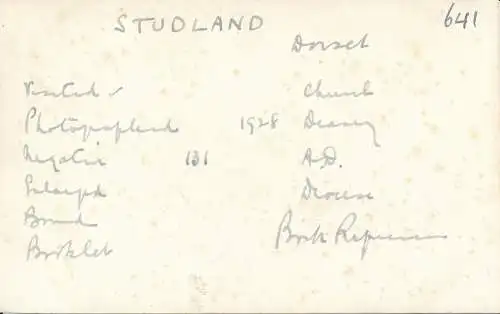 STUDLAND 641
Dorset
Visited ✓ Church
Photographed 1928 Deanery
Negative 131 A.D.
Enlarged Diocese
Bound
Book References
Booklet